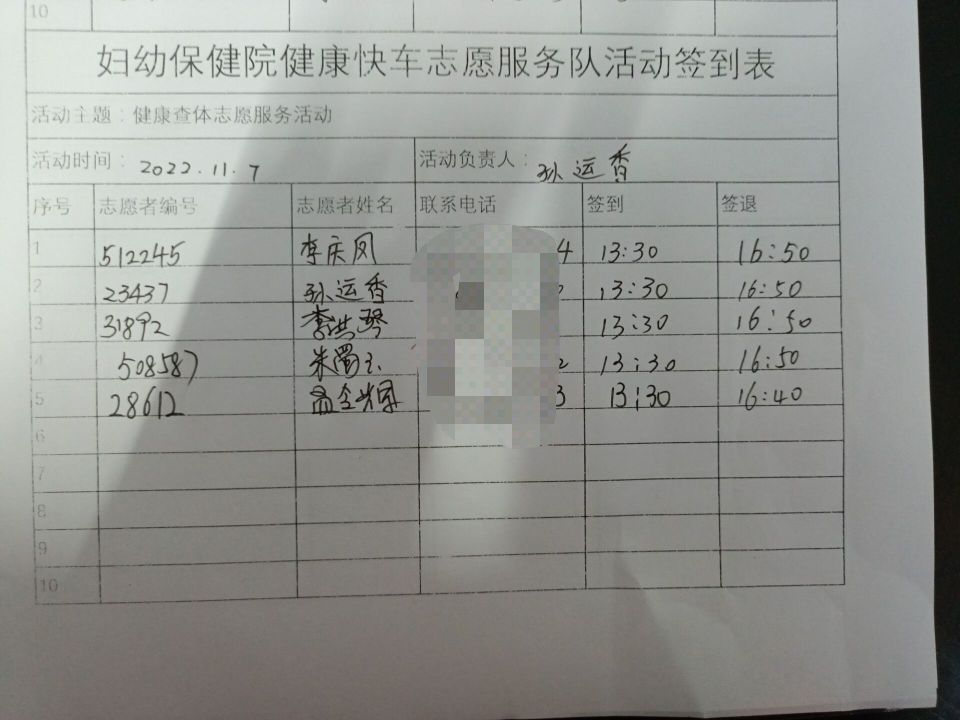 10
妇幼保健院健康快车志愿服务队活动签到表
活动主题：健康查体志愿服务活动
活动时间：2022.11.7 活动负责人：孙运香
序号 志愿者编号 志愿者姓名 联系电话 签到 签退
1 512245 李庆凤 4 13:30 16:50
2 23437 孙运香 13:30 16:50
3 31892 李洪琴 13:30 16:50
4 508587 朱 2 13:30 16:50
5 28612 孟 3 13:30 16:40
6
7
8
9
10